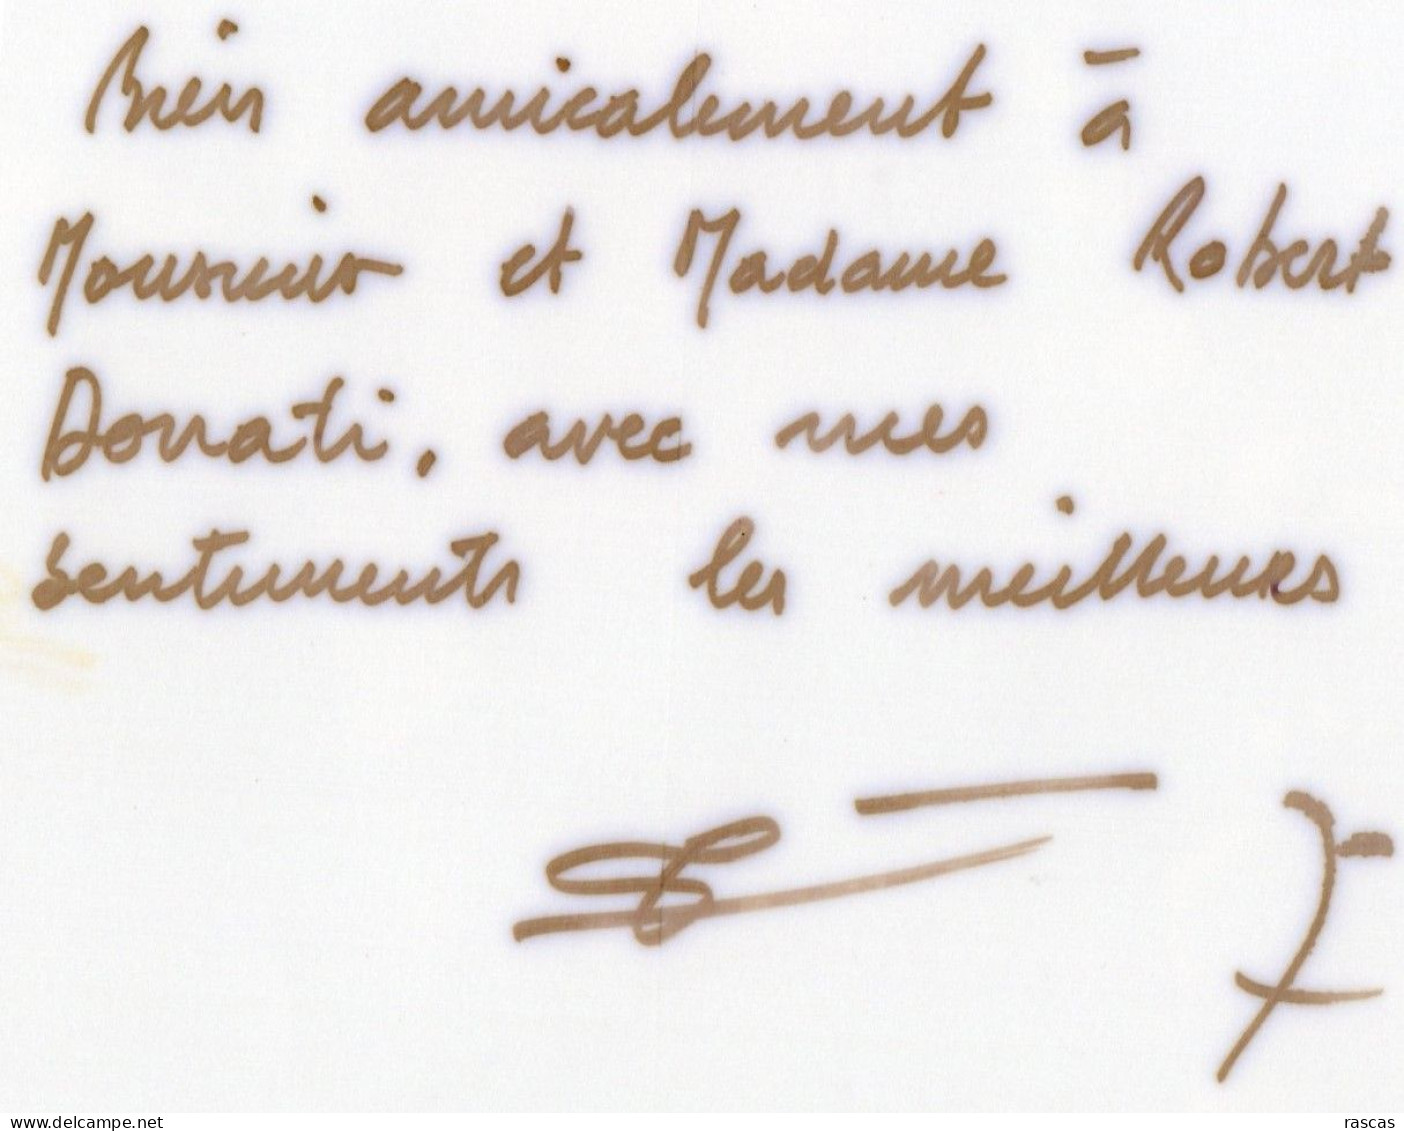 Bien amicalement à
Monsieur et Madame Robert
Donati, avec mes
sentiments les meilleurs
delcampe.net
rascas